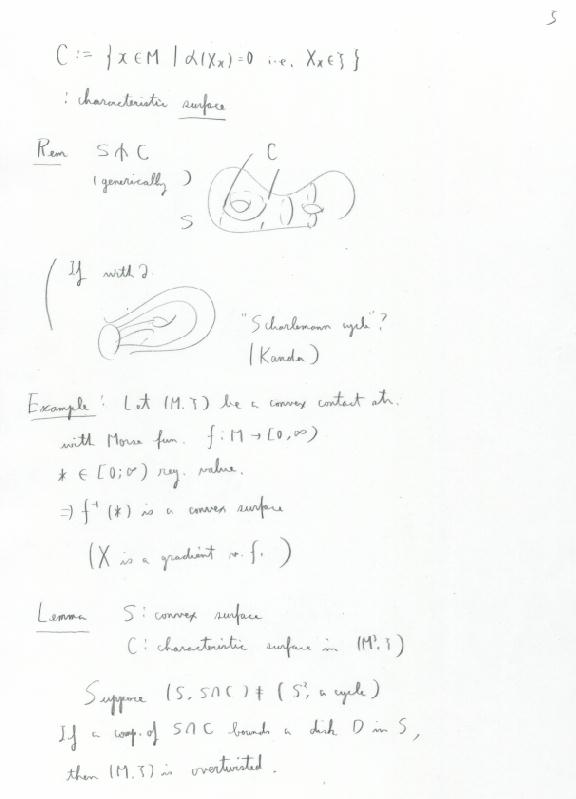 5
C := { x ∈ M | α(X_x) = 0 i.e. X_x ∈ ξ }
: characteristic surface
Rem S ⋔ C
(generically)
C
S
( If with ∂.
"Scharlemann cycle"?
(Kanda)
Example : Let (M, ξ) be a convex contact str.
with Morse fun. f : M → [0, ∞)
* ∈ [0, ∞) reg. value.
⇒ f⁻¹(*) is a convex surface
(X is a gradient v. f.)
Lemma S : convex surface
C : characteristic surface in (M³, ξ)
Suppose (S, S∩C) ≠ (S², a cycle)
If a comp. of S∩C bounds a disk D in S,
then (M, ξ) is overtwisted.